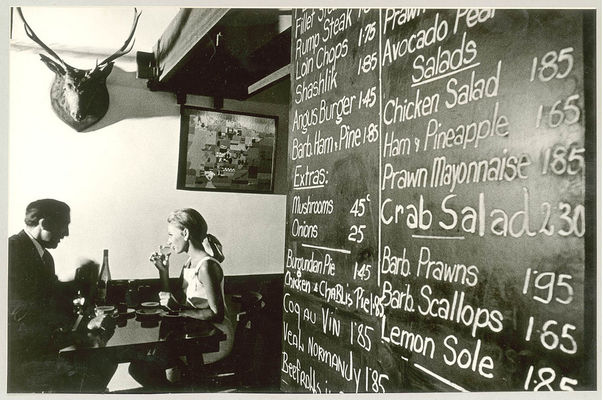 Fillet Steak
Rump Steak 1·75
Loin Chops
Shashlik 1·85
Angus Burger 1·45
Barb. Ham & Pine 1·85
Extras:
Mushrooms 45c
Onions 25
Burgundian Pie 1·45
Chicken & Chablis Pie 1·85
Coq au Vin 1·85
Veal Normandy 1·85
Prawn
Avocado Pear
Salads
Chicken Salad 1·85
Ham & Pineapple 1·65
Prawn Mayonnaise 1·85
Crab Salad 2·30
Barb. Prawns 1·95
Barb. Scallops 1·65
Lemon Sole 1·85